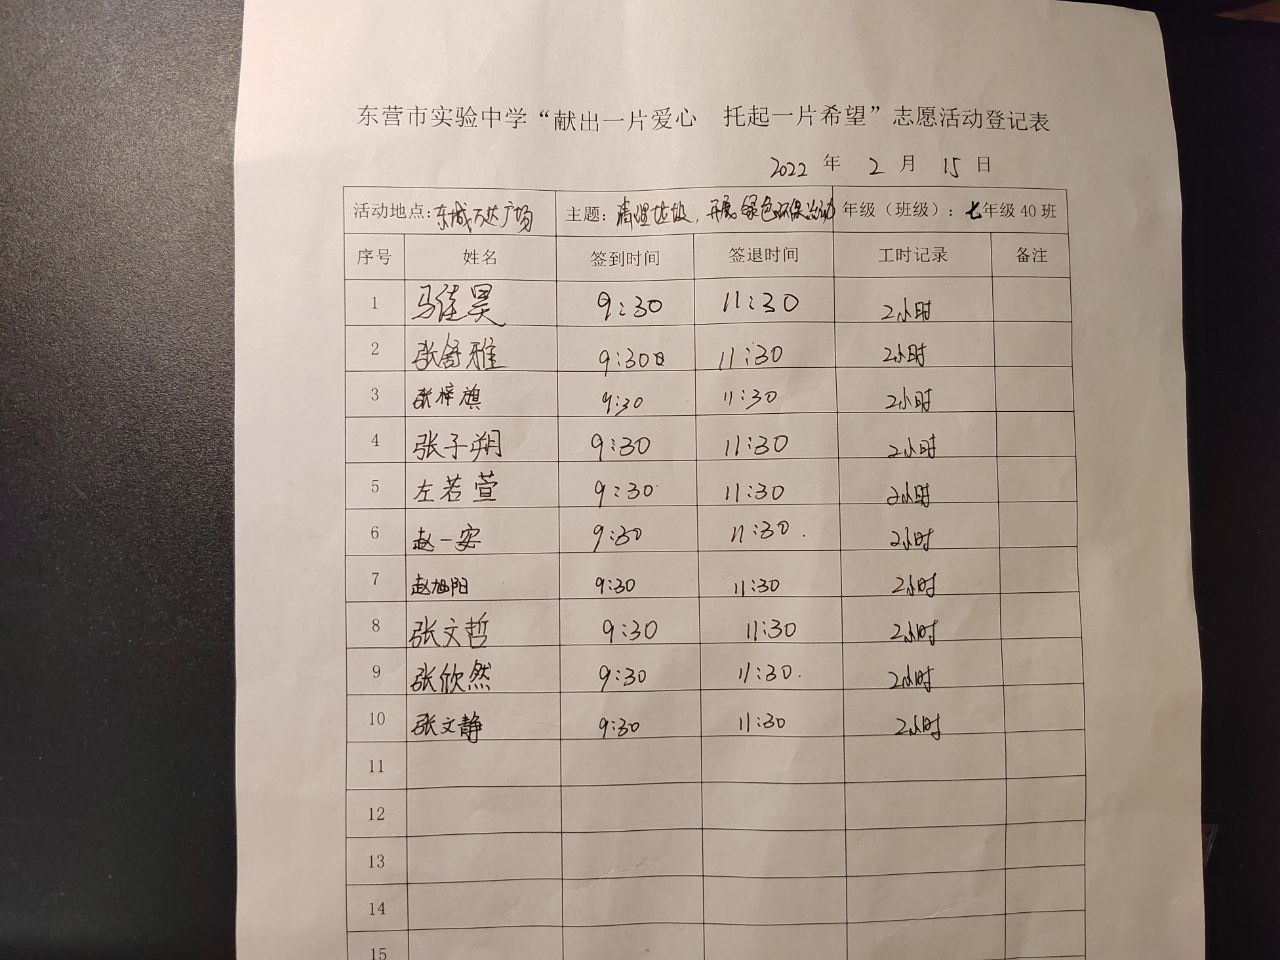 东营市实验中学“献出一片爱心 托起一片希望”志愿活动登记表
2022 年 2 月 15 日
活动地点:东城万达广场 主题:清理垃圾,开展绿色环保活动 年级(班级):七年级40班
序号 姓名 签到时间 签退时间 工时记录 备注
1 马佳昊 9:30 11:30 2小时
2 张舒雅 9:30 11:30 2小时
3 张梓旗 9:30 11:30 2小时
4 张子朔 9:30 11:30 2小时
5 左若萱 9:30 11:30 2小时
6 赵一安 9:30 11:30 2小时
7 赵旭阳 9:30 11:30 2小时
8 张文哲 9:30 11:30 2小时
9 张欣然 9:30 11:30 2小时
10 张文静 9:30 11:30 2小时
11
12
13
14
15